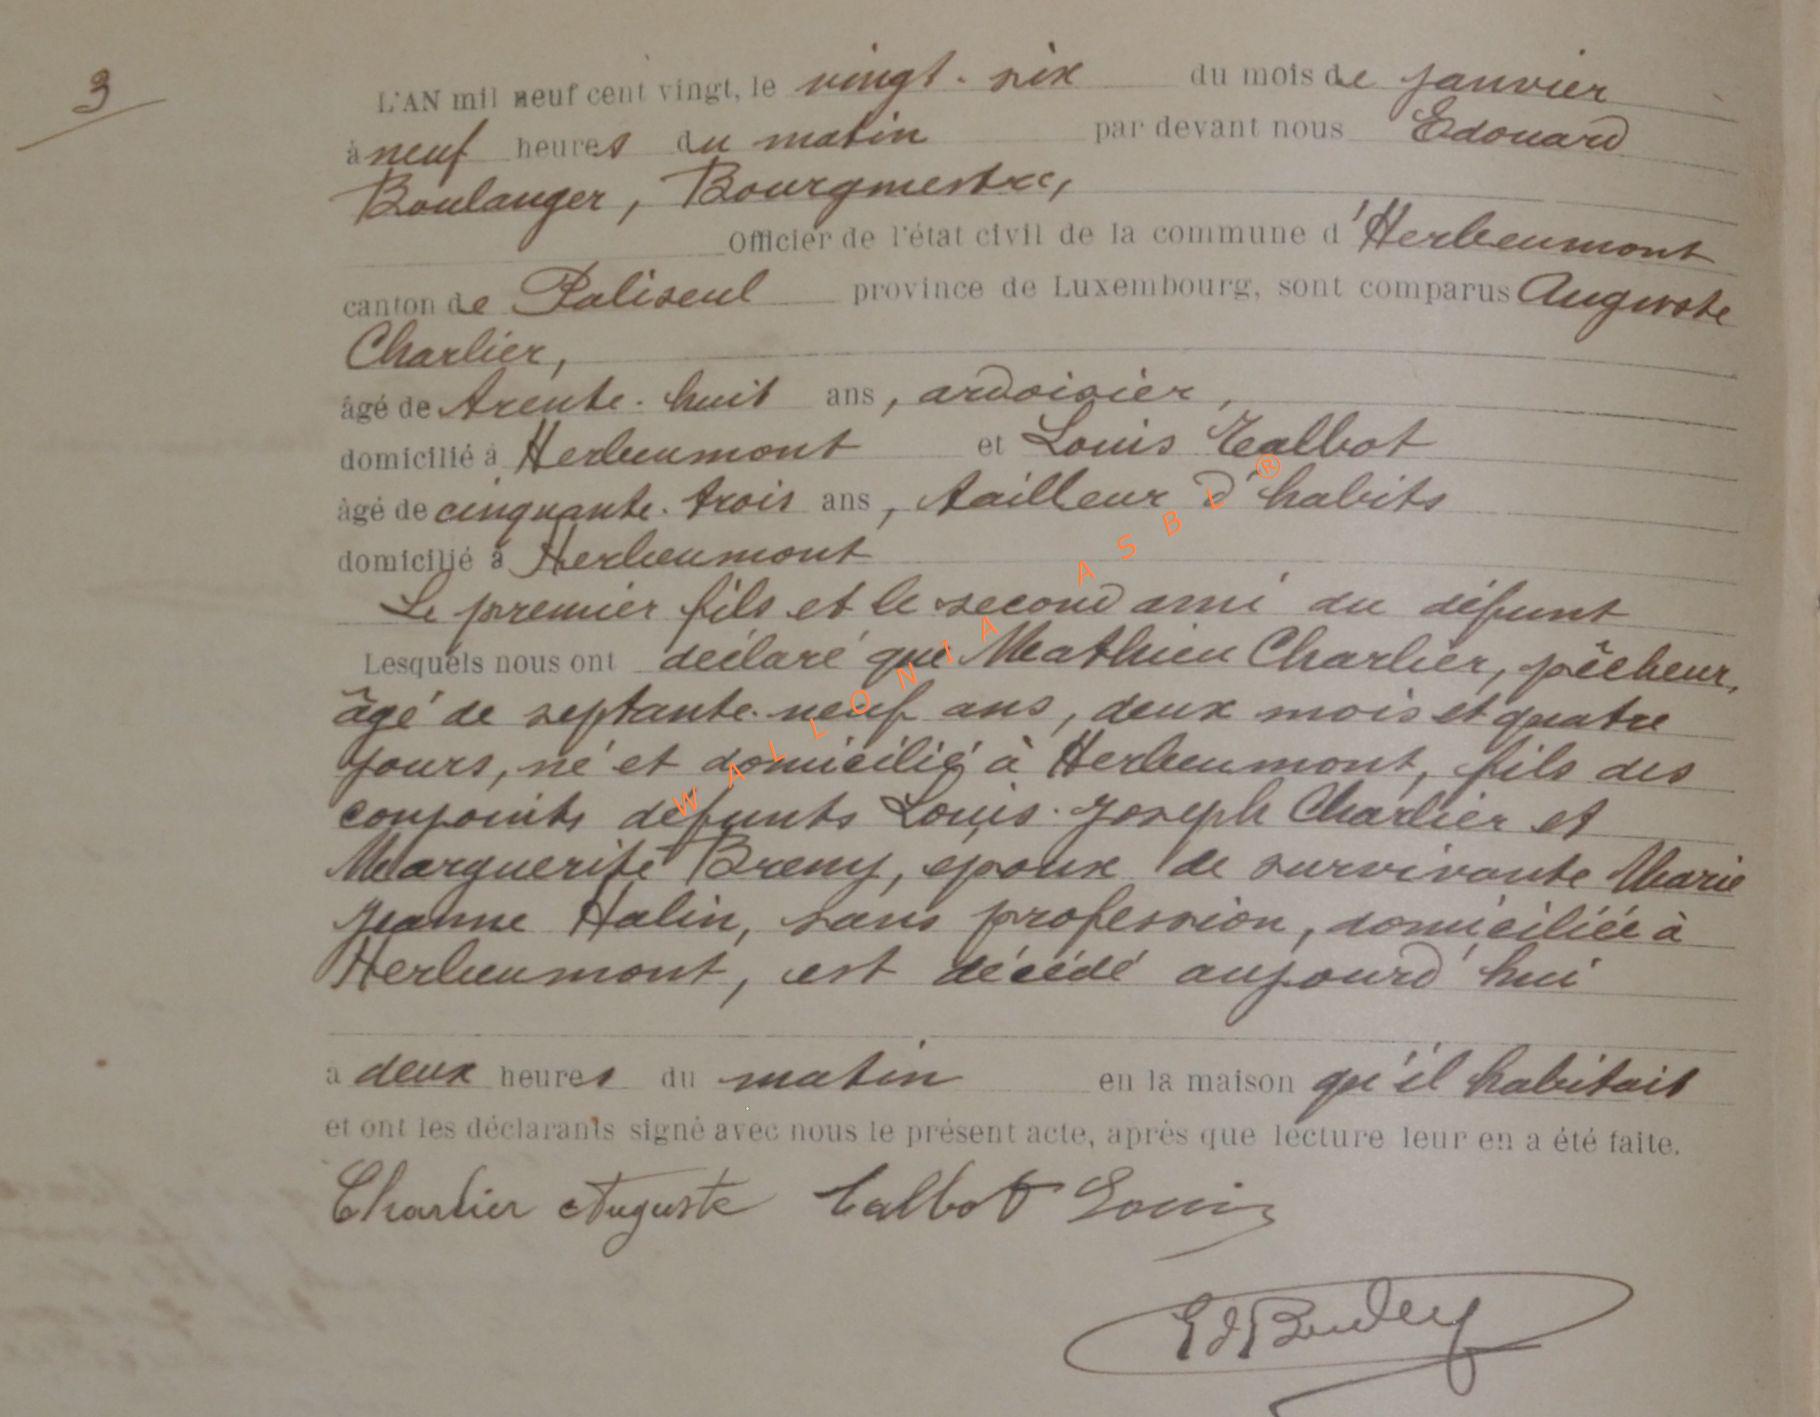 3
L'AN mil neuf cent vingt, le vingt-six du mois de janvier
à neuf heures du matin par devant nous Edouard
Boulanger, Bourgmestre,
Officier de l'état civil de la commune d'Herbeumont
canton de Paliseul province de Luxembourg, sont comparus Auguste
Charlier,
âgé de trente-huit ans, ardoisier,
domicilié à Herbeumont et Louis Talbot
âgé de cinquante-trois ans, tailleur d'habits
domicilié à Herbeumont
Le premier fils et le second ami du défunt
Lesquels nous ont déclaré que Mathieu Charlier, pêcheur,
âgé de septante-neuf ans, deux mois et quatre
jours, né et domicilié à Herbeumont, fils des
conjoints défunts Louis-Joseph Charlier et
Marguerite Breny, époux de survivante Marie
Jeanne Halin, sans profession, domiciliée à
Herbeumont, est décédé aujourd'hui
à deux heures du matin en la maison qu'il habitait
et ont les déclarants signé avec nous le présent acte, après que lecture leur en a été faite.
Charlier Auguste Talbot Louis
WALLONIA ASBL ®